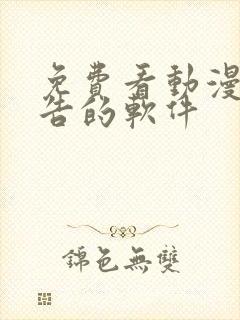 免費看動漫
告的軟件
錦色無雙